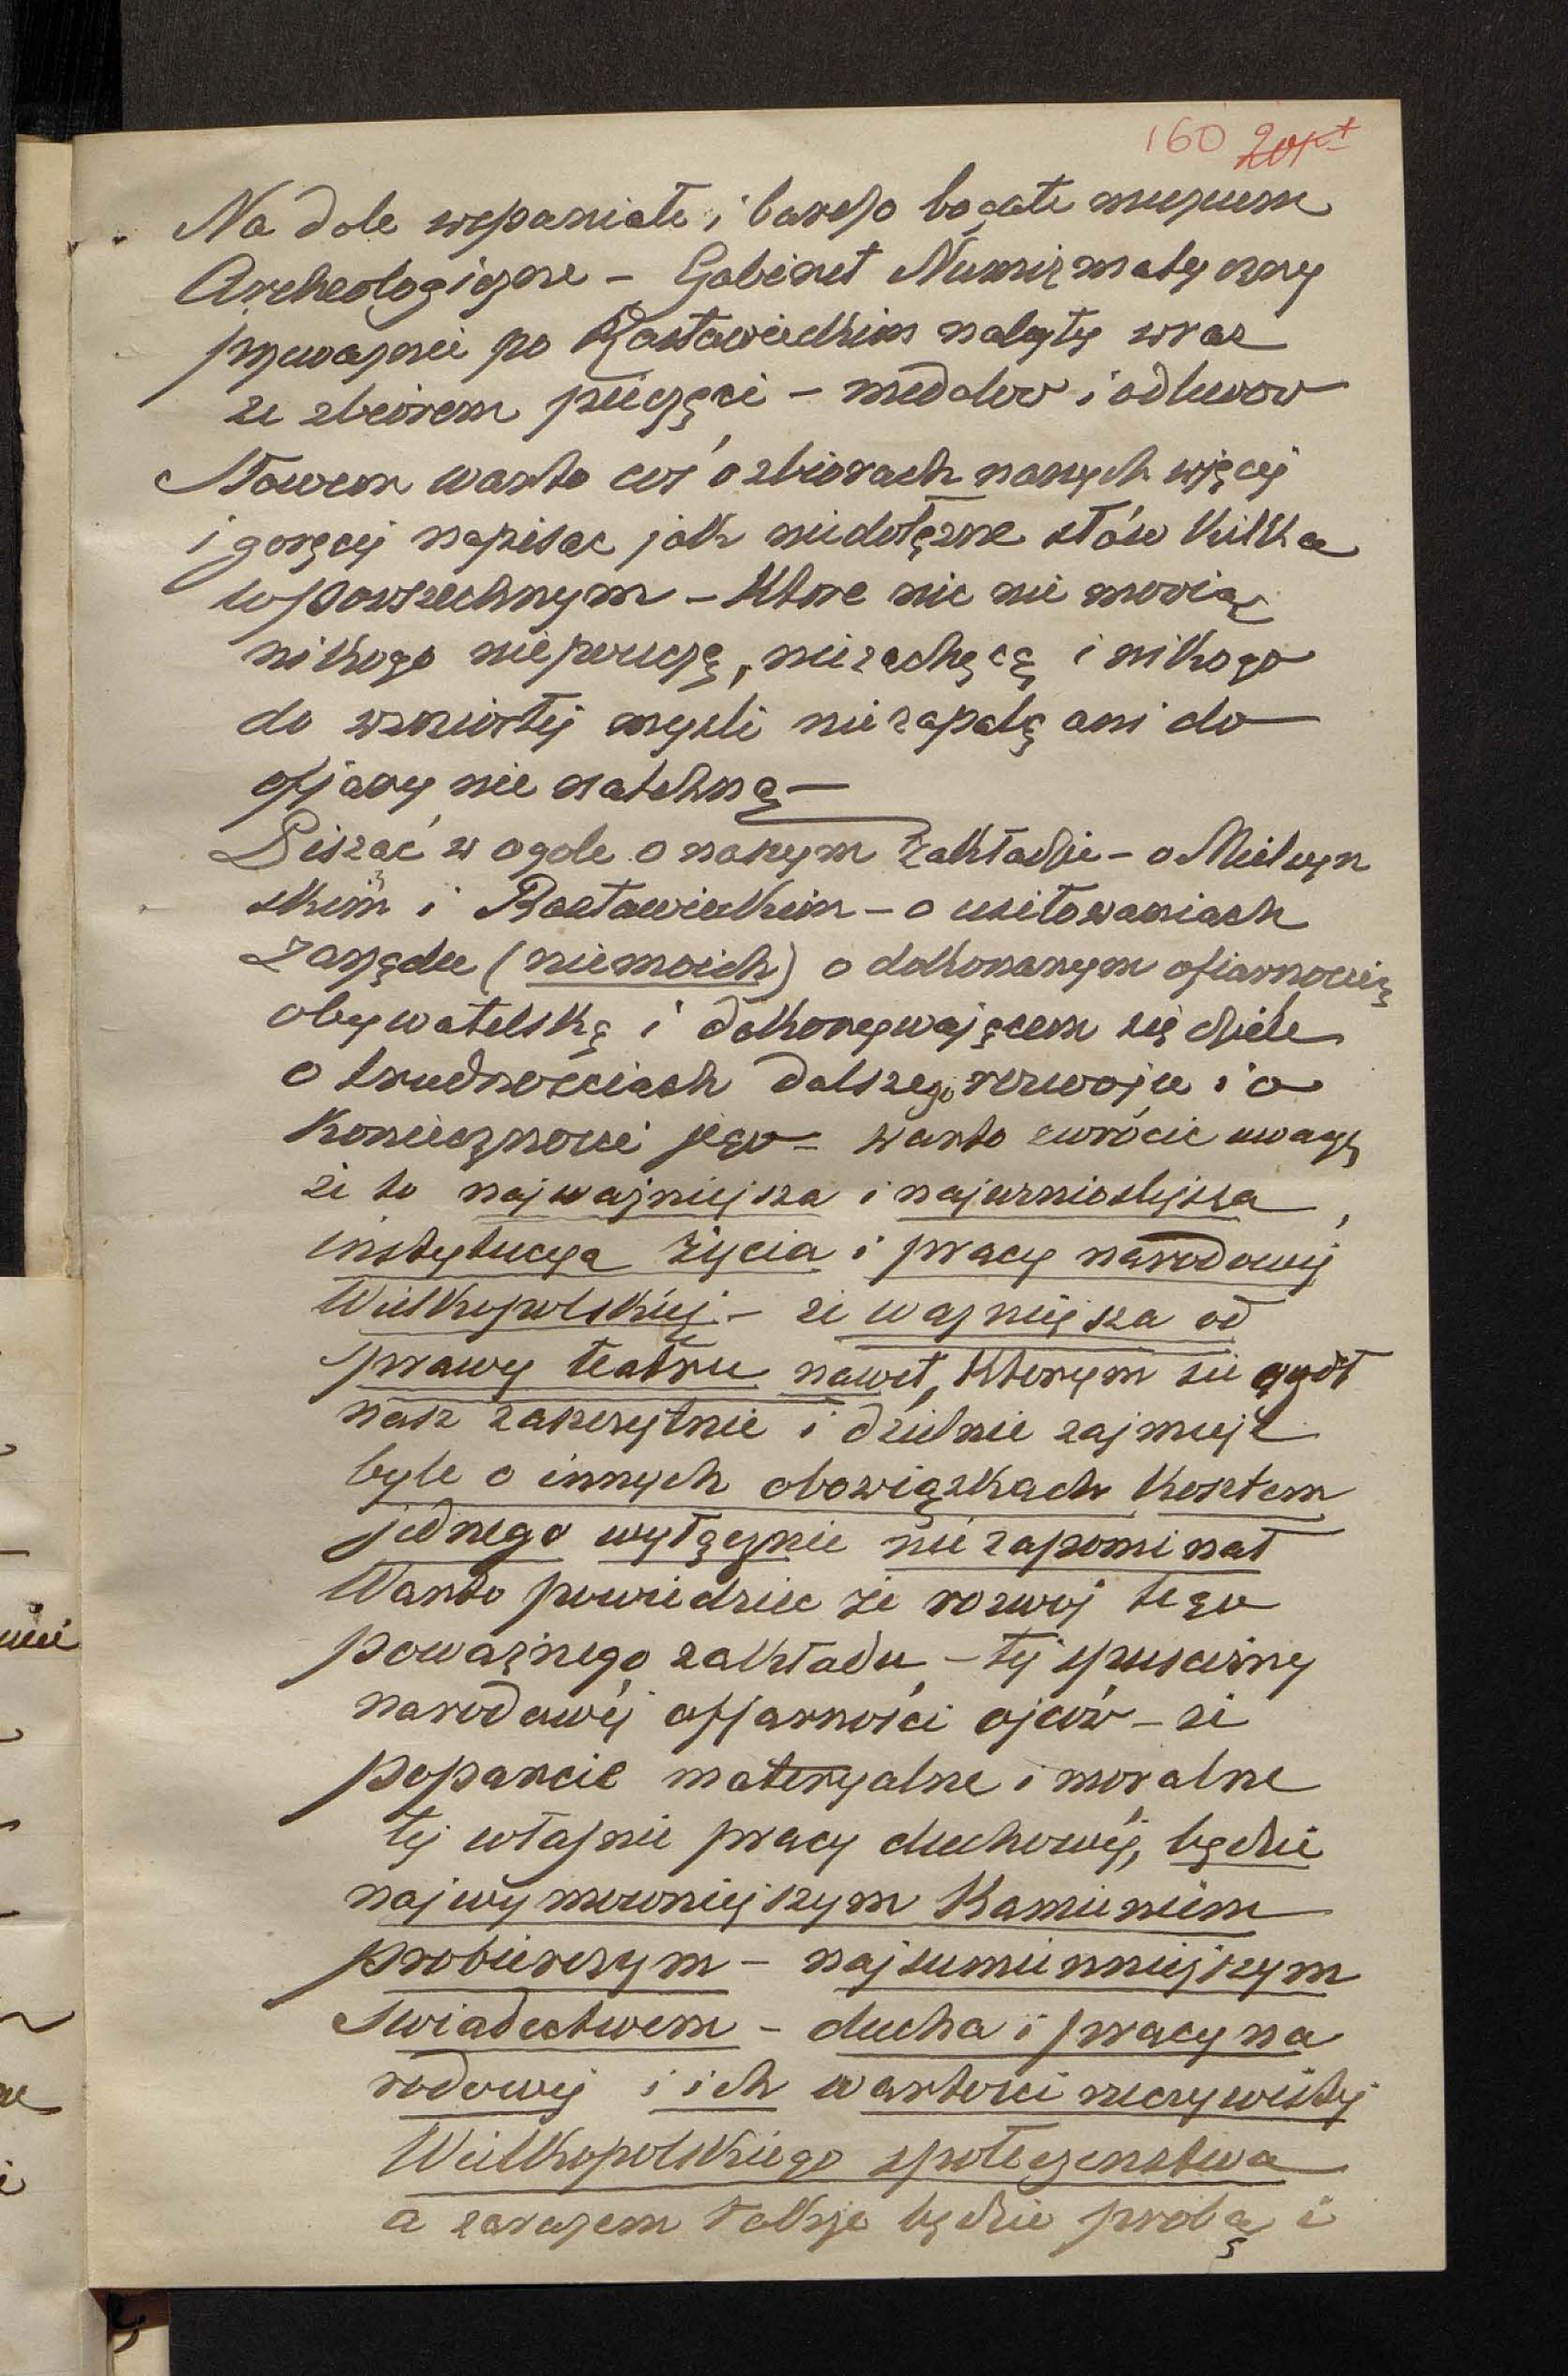 160
Na dole wspaniałe i bardzo bogate muzeum
Archeologiczne – Gabinet Numizmatyczny
przeważnie po Rastawieckim nabyty wraz
ze zbiorem pieczęci – medalow i odlewow
Słowem warto coś o zbiorach naszych więcej
i goręcej napisac jak niedołęzne słów kilka
w powszechnym – Ktore nic nie mowią
nikogo niepouczą, niezachęcą i nikogo
do wzniosłej mysli niezapalą ani do
ofjary nie natchną –
Pisząc w ogole o naszym Zakładzie – o Mielzyn
skim i Rastawieckim – o usiłowaniach
Zarządu (niemoich) o dokonanym ofiarnoscią
obywatelską i dokonywającem się dziele
o trudnosciach dalszego rozwoju i o
Koniecznosci jego – warto zwrócic uwagę
ze to najwazniejsza i najwznioslejsza
instytucya życia i pracy narodowej
Wielkopolskiej – ze wazniejsza od
sprawy teatru nawet, Ktorym sie ogół
nasz zaszczytnie i dzielnie zajmuje
byle o innych obowiązkach Kosztem
jednego wyłącznie nie zapominał
Warto powiedziec że rozwoj tego
poważnego zakładu – tej spuscizny
narodowéj offarności ojców – ze
poparcie materyalne i moralne
tej własnie pracy duchowéj, będzie
najwymowniejszym Kamieniem
probierczym – najsumienniejszym
Swiadectwem – ducha i pracy na
rodowej i ich wartosci rzeczywistej
Wielkopolskiego społeczenstwa
a zarazem takze będzie probą i